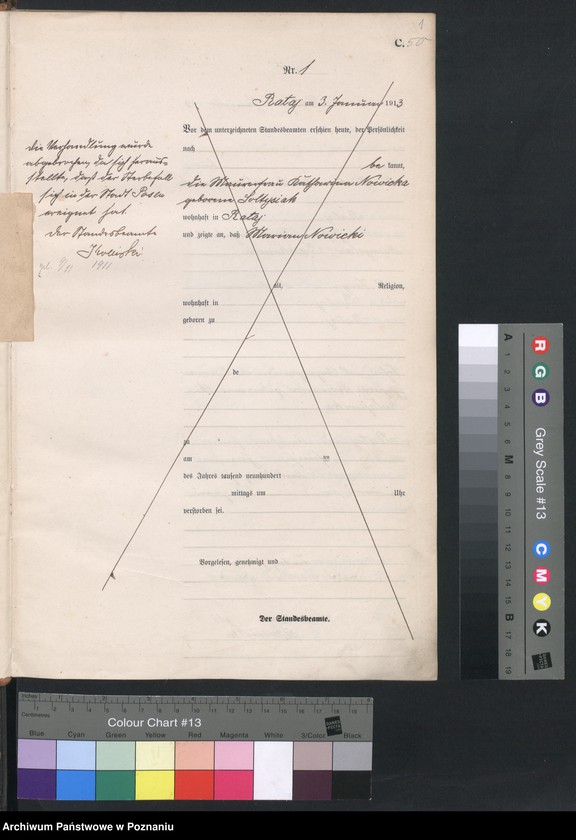 1
C. 50
Nr. 1
Rataj am 3. Januar 1913
Vor dem unterzeichneten Standesbeamten erschien heute, der Persönlichkeit
nach
be kannt,
die Maurerfrau Katharina Nowicka
geborene Soltysiak
wohnhaft in Rataj
und zeigte an, daß Marian Nowicki
alt, Religion,
wohnhaft in
geboren zu
de
zu
am ten
des Jahres tausend neunhundert
mittags um Uhr
verstorben sei.
Vorgelesen, genehmigt und
Der Standesbeamte.
Die Verhandlung wurde
abgebrochen, da sich heraus-
stellte, daß der Sterbefall
sich in der Stadt Posen
ereignet hat
Der Standesbeamte
1911
Inches
Centimetres
Colour Chart #13
Blue Cyan Green Yellow Red Magenta White 3/Color Black
R G B
Grey Scale #13
C M Y K
A 1 2 3 4 5 6 M 8 9 10 11 12 13 14 15 B 17 18 19
Archiwum Państwowe w Poznaniu